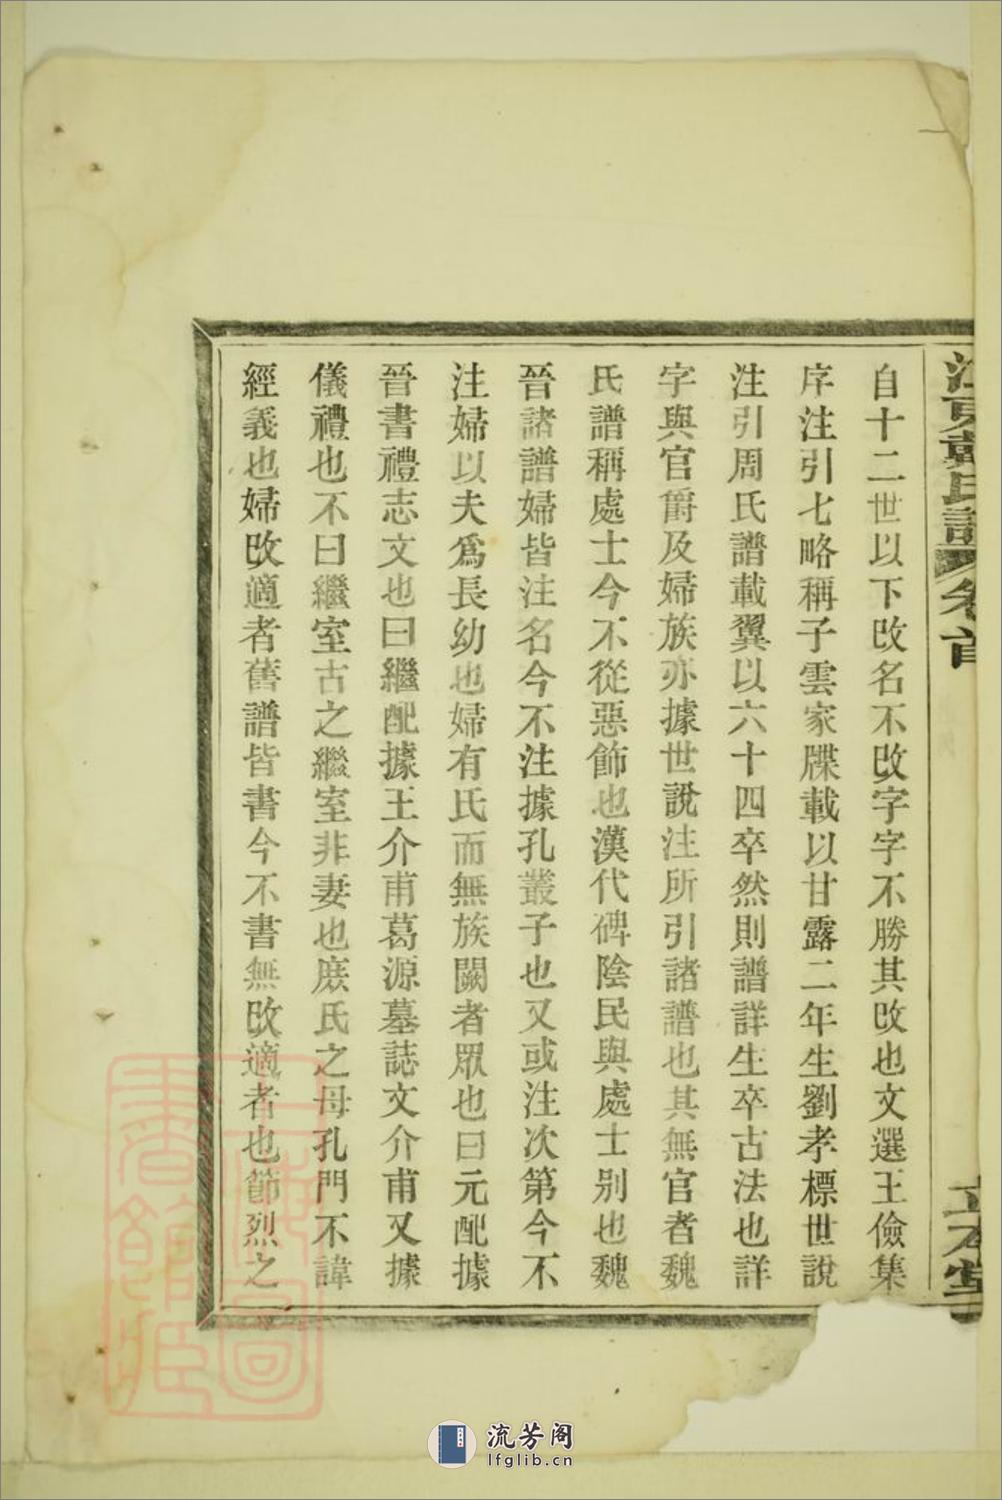 江東戴氏譜 卷首
自十二世以下改名不改字字不勝其改也文選王儉集
序注引七略稱子雲家牒載以甘露二年生劉孝標世說
注引周氏譜載翼以六十四卒然則譜詳生卒古法也詳
字與官爵及婦族亦據世說注所引諸譜也其無官者魏
氏譜稱處士今不從惡飾也漢代碑陰民與處士別也魏
晉諸譜婦皆注名今不注據孔叢子也又或注次第今不
注婦以夫爲長幼也婦有氏而無族闕者眾也曰元配據
晉書禮志文也曰繼配據王介甫葛源墓誌文介甫又據
儀禮也不曰繼室古之繼室非妻也庶氏之母孔門不諱
經義也婦改適者舊譜皆書今不書無改適者也節烈之
上海圖書館藏
流芳阁
lfglib.cn